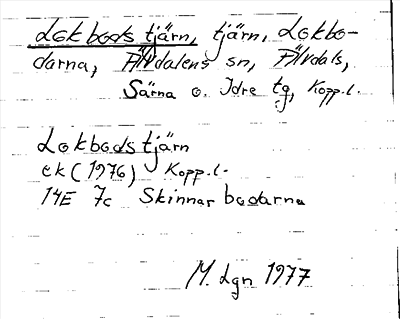 Lokbodstjärn, tjärn, Lokbo-
darna, Älvdalens sn, Älvdals,
Särna o. Idre tg, Kopp.l.
Lokbodstjärn
ek (1976) Kopp.l.
14E 7c Skinnarbodarna
M. Lgn 1977